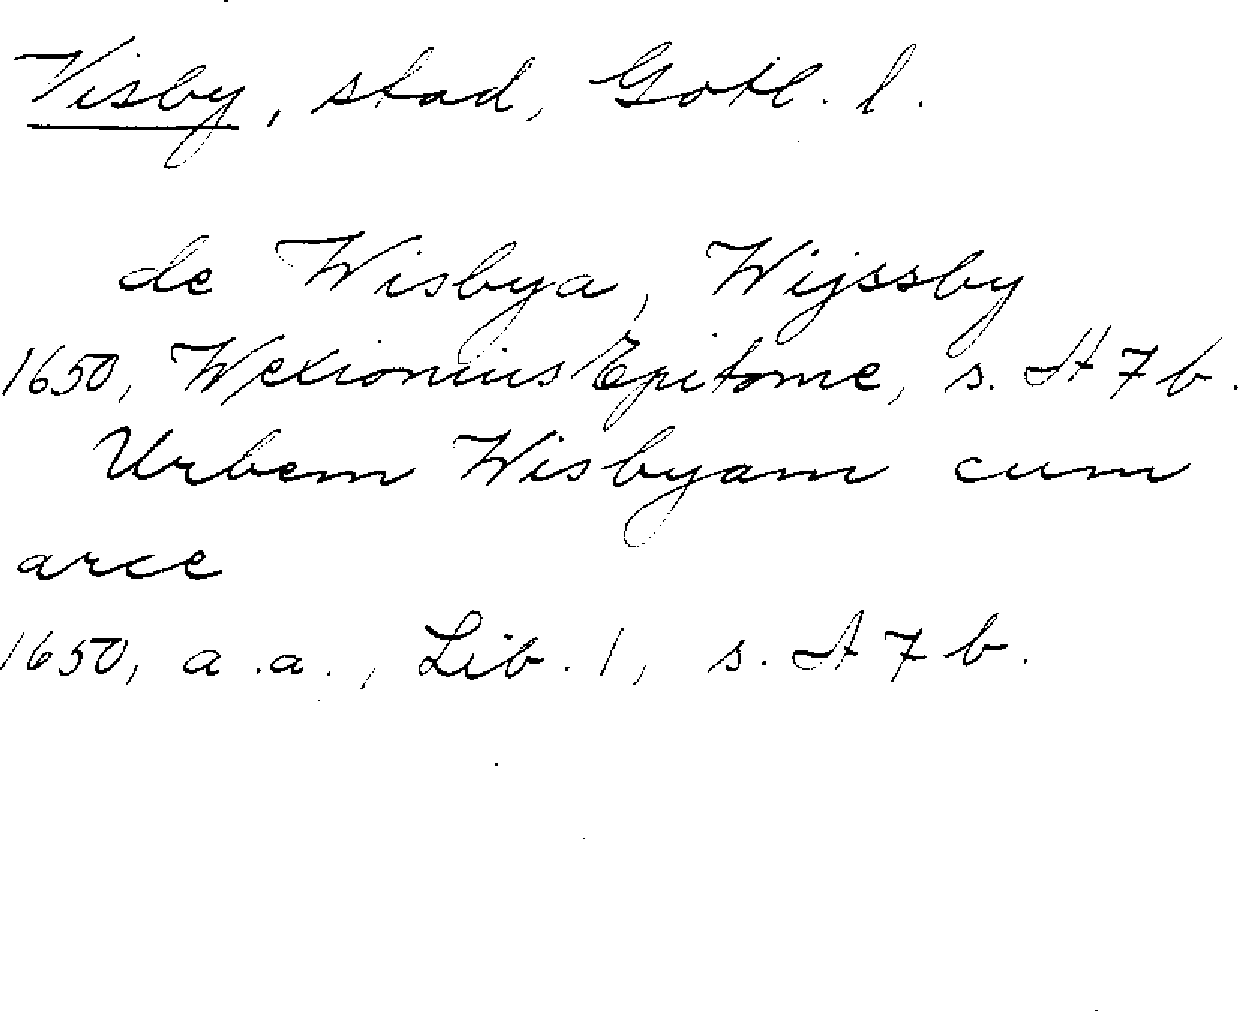 Visby, stad, Gotl. l.
de Wisbya, Wijssby
1650, Wexionius Epitome, s. A 7 b.
Urbem Wisbyam cum
arce
1650, a.a., Lib. 1, s. A 7 b.